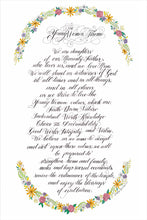 Young Women Theme
We are daughters
of our Heavenly Father
who loves us, and we love Him.
We will stand as witnesses of God
at all times and in all things,
and in all places
as we strive to live the
Young Women values, which are:
Faith Divine Nature
Individual Worth Knowledge
Choice and Accountability
Good Works Integrity and Virtue
We believe as we come to accept and
act upon these values, we will
be prepared to
strengthen home and family,
make and keep sacred covenants,
receive the ordinances of the temple, and
enjoy the blessings
of exaltation.